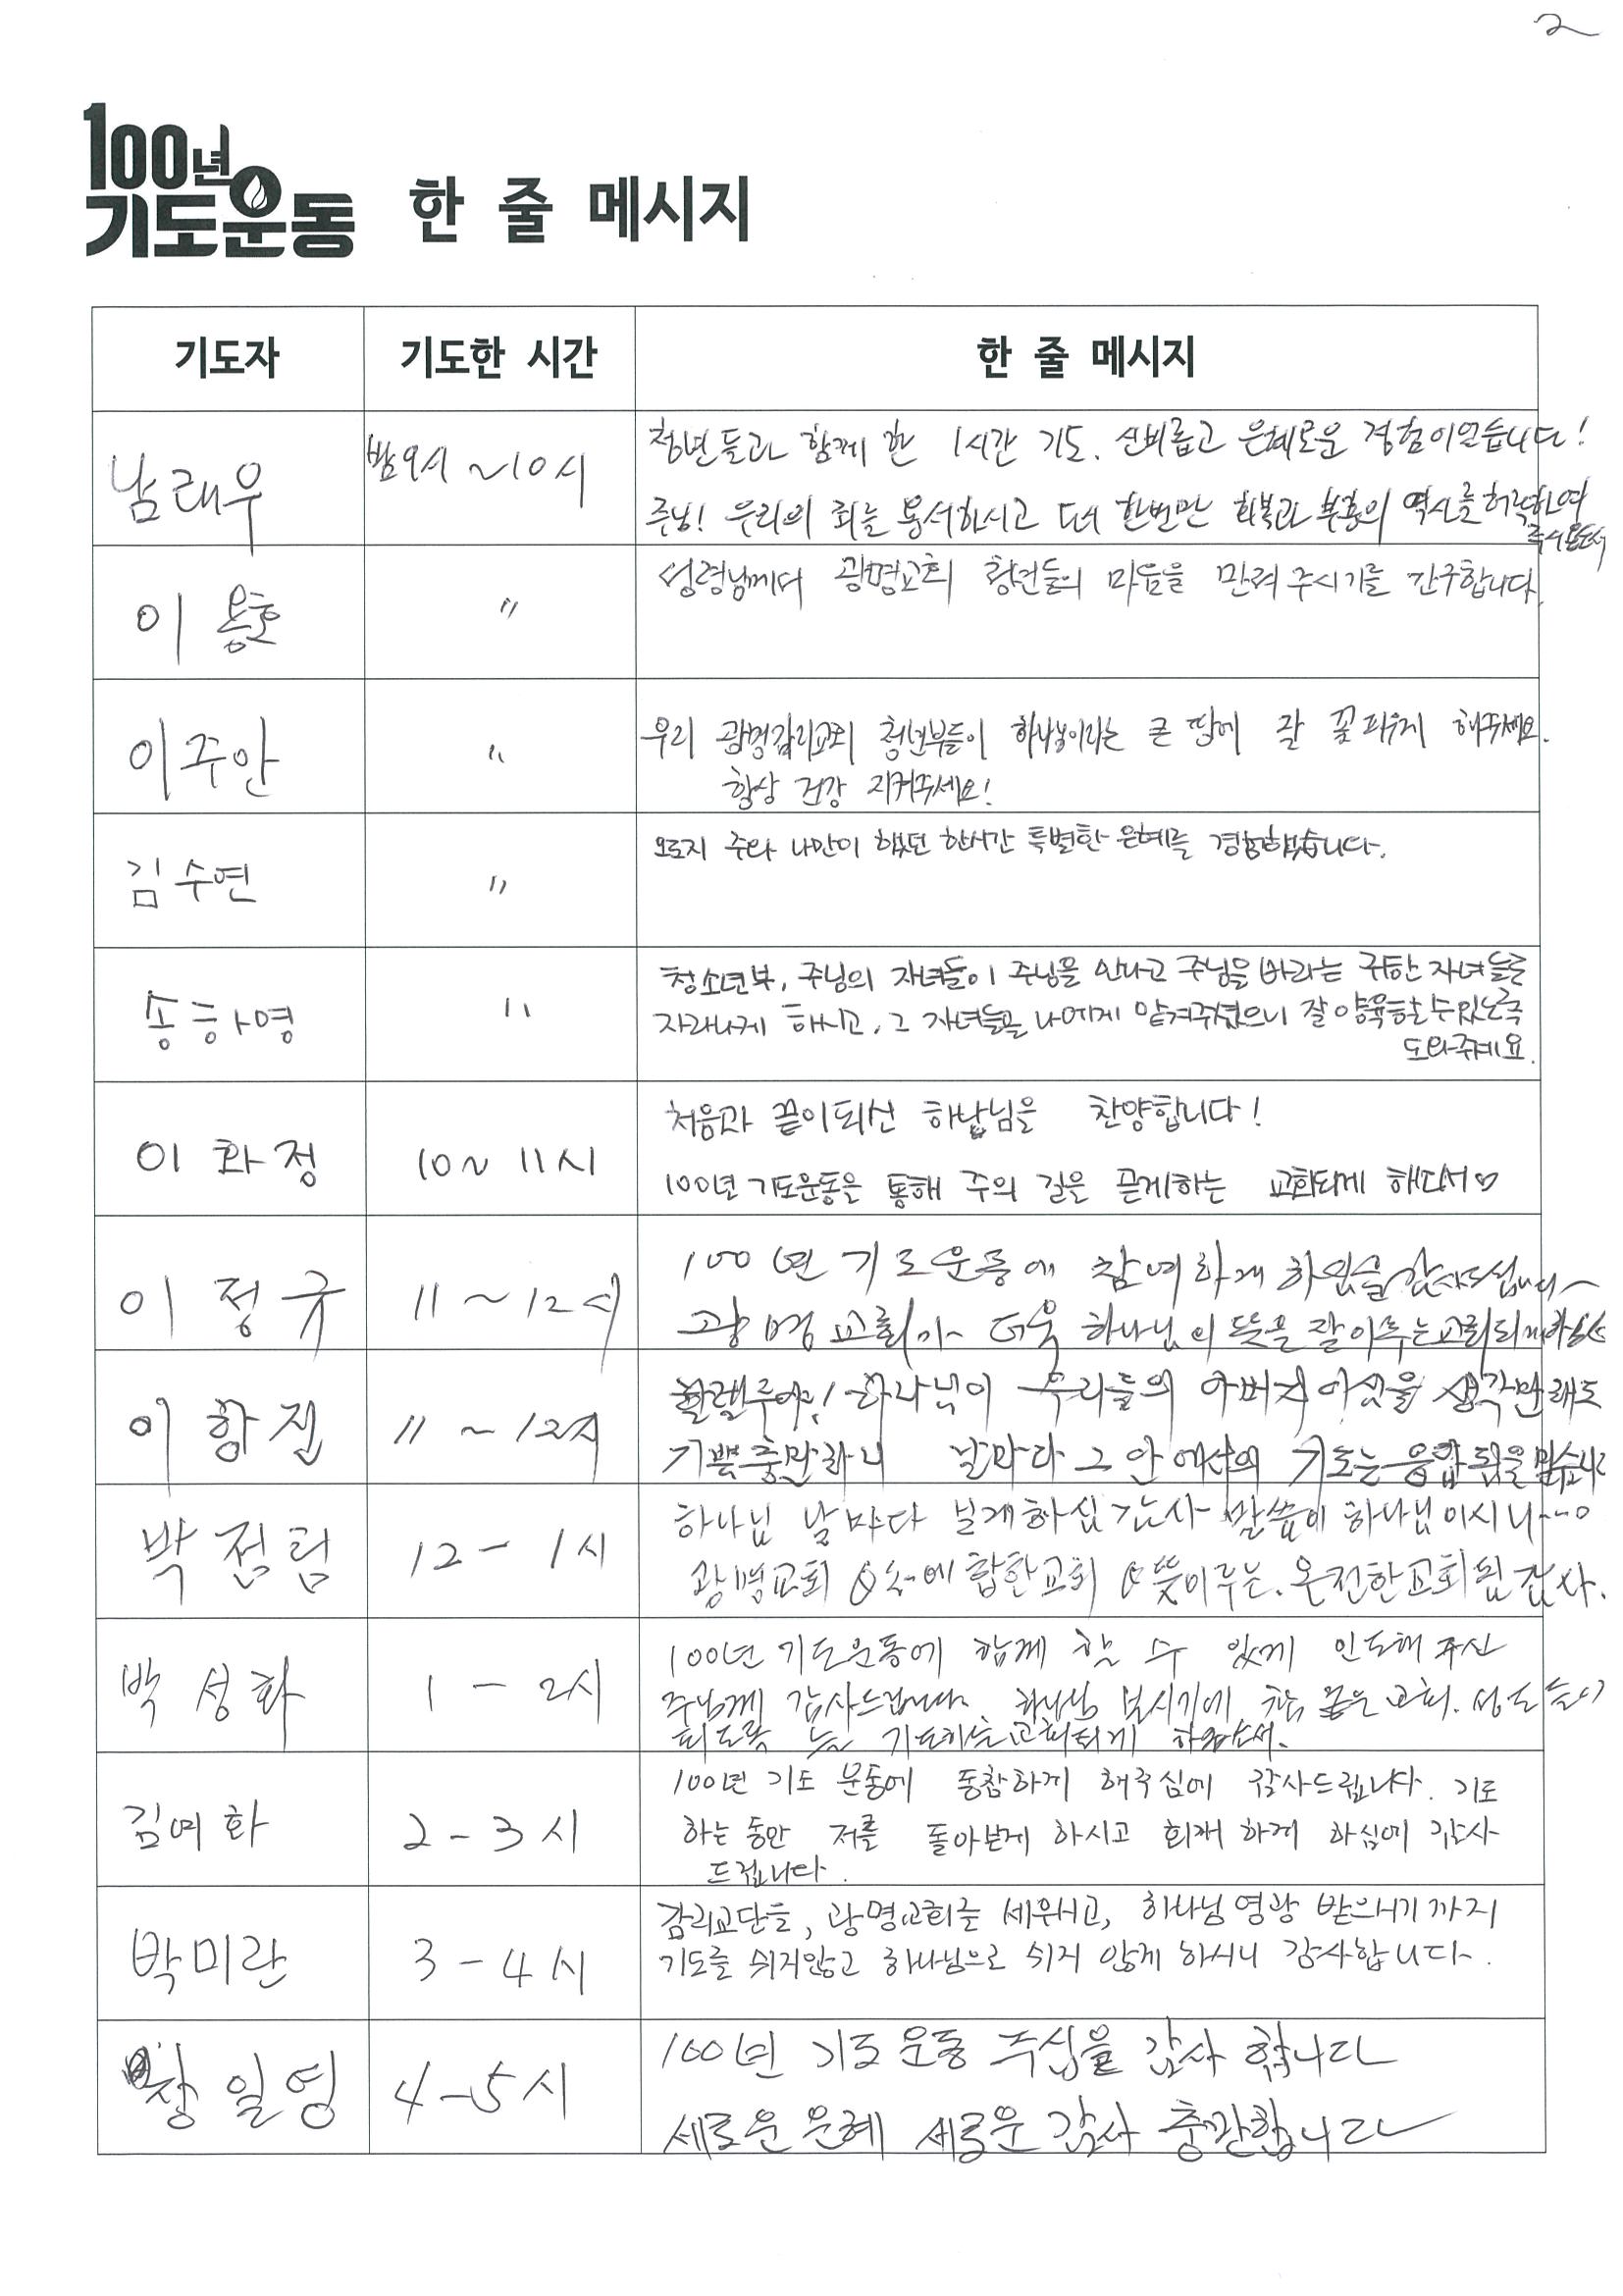 2
100년
기도운동 한 줄 메시지
기도자 기도한 시간 한 줄 메시지
남래우 밤9시 ~10시 청년들과 함께 한 1시간 기도. 신비롭고 은혜로운 경험이었습니다!
주님! 우리의 죄를 용서하시고 다시 한번만 회복과 부흥의 역사를 허락하여
주시옵소서
이용호 〃 성령님께서 광명교회 청년들의 마음을 만져 주시기를 간구합니다.
이주안 〃 우리 광명감리교회 청년부들이 하나님이라는 큰 땅에 잘 꽃피우게 해주세요.
항상 건강 지켜주세요!
김수연 〃 오로지 주와 나만이 했던 한시간 특별한 은혜를 경험했습니다.
송하영 〃 청소년부, 주님의 자녀들이 주님을 안다고 주님을 바라는 귀한 자녀들로
자라나게 하시고, 그 자녀들을 나에게 맡겨주셨으니 잘 양육할 수 있도록
도와주세요.
이화정 10~11시 처음과 끝이되신 하나님을 찬양합니다!
100년 기도운동을 통해 주의 길을 곧게하는 교회되게 해주소서♡
이정규 11~12시 100년 기도운동에 참여하게 하심을 감사드립니다
광명교회가 더욱 하나님의 뜻을 잘 이루는 교회되게 하소서
이항진 11~12시 할렐루야! 하나님이 우리들의 아버지 이심을 생각만 해도
기쁨충만하니 날마다 그 안에서의 기도는 응답됨을 믿습니다
박점림 12-1시 하나님 날마다 보게하심 감사 말씀이 하나님이시니~~
광명교회 에 합한교회 뜻이루는. 온전한교회됨 감사.
박성화 1-2시 100년 기도운동에 함께 할 수 있게 인도해 주신
주님께 감사드립니다. 하나님 보시기에 참 좋은 교회. 성도들이
되도록 늘 기도하는교회되게 하옵소서.
김여화 2-3시 100년 기도 운동에 동참하게 해주심에 감사드립니다. 기도
하는 동안 저를 돌아보게 하시고 회개 하게 하심에 감사
드립니다.
박미란 3-4시 감리교단들, 광명교회를 세우시고, 하나님 영광 받으시기까지
기도를 쉬지않고 하나님으로 쉬지 않게 하시니 감사합니다.
장일영 4-5시 100년 기도 운동 주심을 감사 합니다
새로운 은혜 새로운 감사 충만합니다